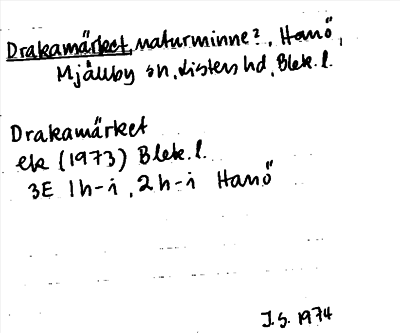 Drakamärket, naturminne?, Hanö,
Mjällby sn, Listers hd, Blek. l.
Drakamärket
ek (1973) Blek. l.
3E 1h-i, 2h-i Hanö
J.S. 1974